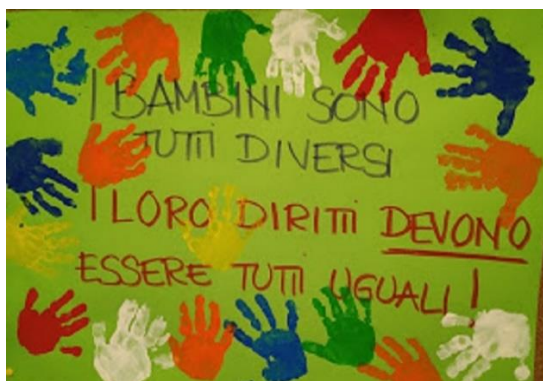 I BAMBINI SONO
TUTTI DIVERSI
I LORO DIRITTI DEVONO
ESSERE TUTTI UGUALI!